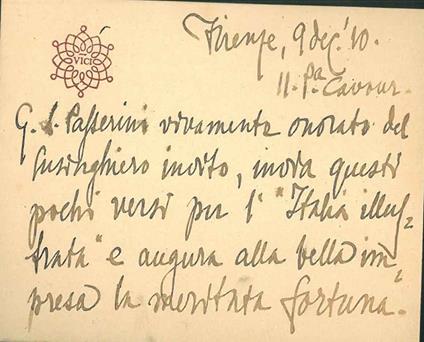 VICI
Firenze, 9 dec. '10.
11. Pa. Cavour.
G. L. Passerini vivamente onorato del
lusinghiero invito, invia questi
pochi versi per l' "Italia illus-
trata" e augura alla bella im-
presa la meritata fortuna.